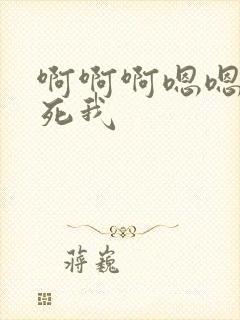 啊啊啊嗯嗯
死我
蒋巍